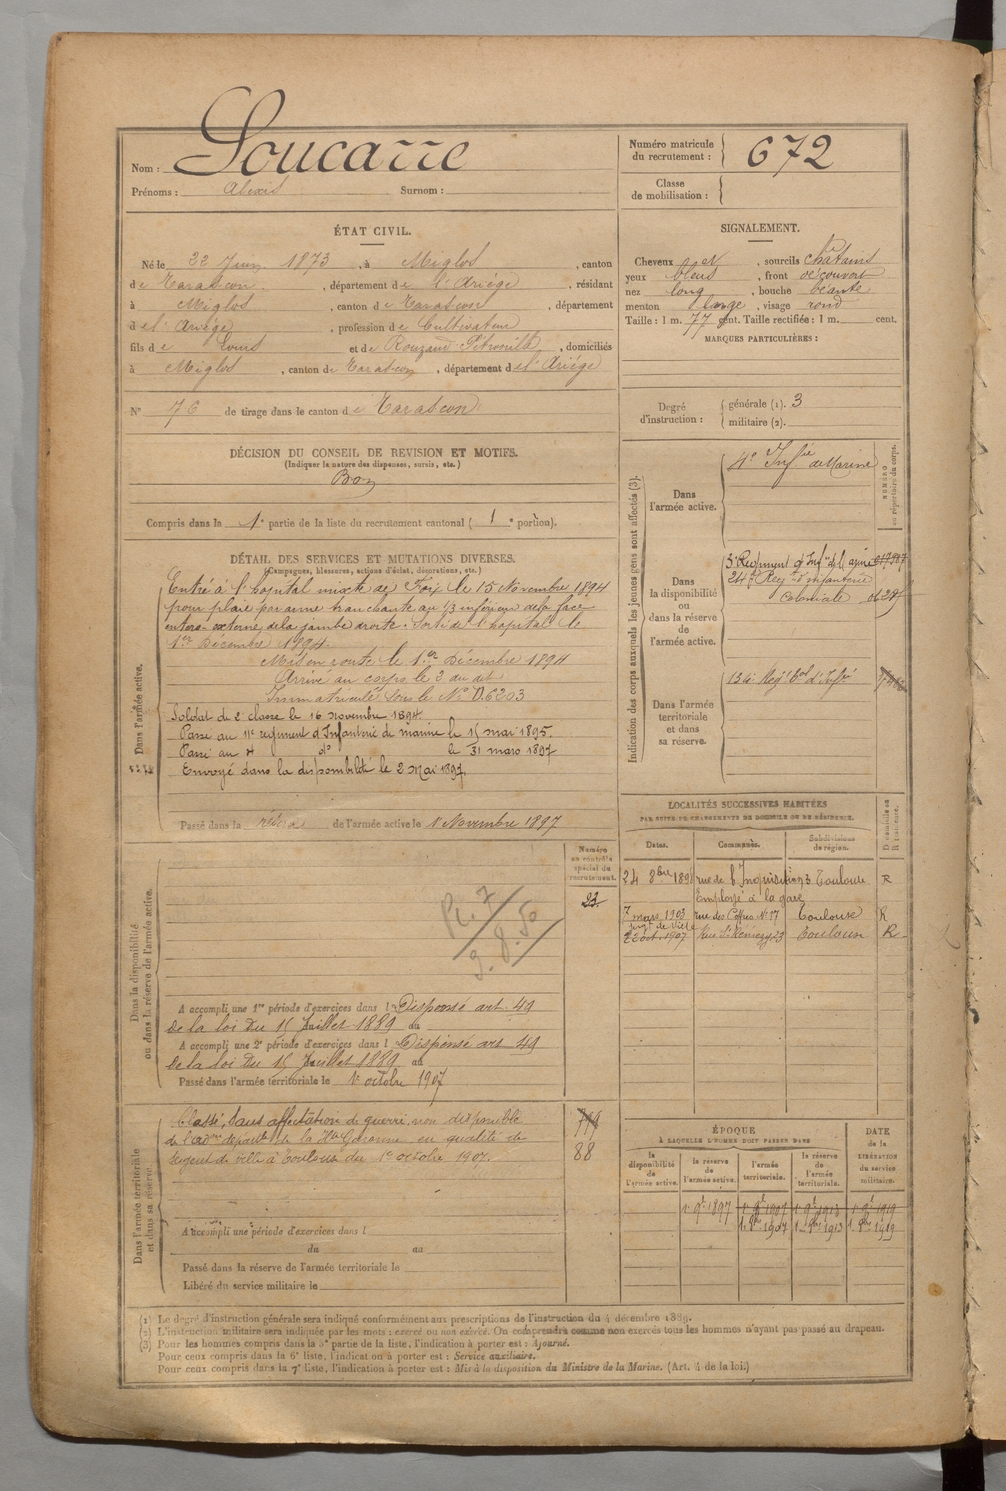 Nom : Soucarre
Prénoms : Alexis Surnom :
Numéro matricule du recrutement : 672
Classe de mobilisation :
ÉTAT CIVIL.
Né le 22 Juin 1873, à Miglos, canton
de Tarascon, département de l'Ariége, résidant
à Miglos, canton de Tarascon, département
de l'Ariége, profession de Cultivateur
fils de Louis et de Rouzaud Pétronille, domiciliés
à Miglos, canton de Tarascon, département de l'Ariége
N° 76 de tirage dans le canton de Tarascon
SIGNALEMENT.
Cheveux et, sourcils châtains
yeux bleus, front découvert
nez long, bouche béante
menton large, visage rond
Taille : 1 m. 77 cent. Taille rectifiée : 1 m. cent.
MARQUES PARTICULIÈRES :
Degré d'instruction : générale (1). 3
militaire (2).
DÉCISION DU CONSEIL DE REVISION ET MOTIFS.
(Indiquer la nature des dispenses, sursis, etc.)
Bon
Compris dans la 1e partie de la liste du recrutement cantonal ( 1 e portion).
DÉTAIL DES SERVICES ET MUTATIONS DIVERSES.
(Campagnes, blessures, actions d'éclat, décorations, etc.)
Dans l'armée active.
Entré à l'hopital mixte de Foix le 15 Novembre 1894
pour plaie par arme tranchante au 1/3 inférieur de la face
entero-externe de la jambe droite. Sorti de l'hopital le
1er Décembre 1894.
Mis en route le 1er Décembre 1894
Arrivé au corps le 2 du dit
Immatriculé sous le N° D.6203
Soldat de 2e classe le 16 novembre 1894
Passé au 11e régiment d'Infanterie de marine le 15 mai 1895.
Passé au 4 do le 31 mars 1897
Envoyé dans la disponibilité le 2 Mai 1897.
Passé dans la réserve de l'armée active le 1 Novembre 1897
Indication des corps auxquels les jeunes gens sont affectés (3).
NUMÉRO au répertoire du corps.
Dans l'armée active.
4e Infie de Marine
Dans la disponibilité ou dans la réserve de l'armée active.
3e Régiment d'Infie de Marine
24e Regt d'infanterie
Coloniale
Dans l'armée territoriale et dans sa réserve.
134e Regt tal d'Infie
LOCALITÉS SUCCESSIVES HABITÉES
PAR SUITE DE CHANGEMENTS DE DOMICILE OU DE RÉSIDENCE.
Dates. Communes. Subdivisions de région. D domicile ou R résidence.
24 8bre 189 rue de l'Inquisition 3 Toulouse R
Employé à la gare
7 mars 1903 rue des Coffres N° 17 Toulouse R
sergt de ville
2 août 1907 Rue St Rémézy 23 Toulouse R
Numéro au contrôle spécial du recrutement.
23
Dans la disponibilité ou dans la réserve de l'armée active.
A accompli une 1re période d'exercices dans l Dispensé art. 49
de la loi du 15 Juillet 1889 du
A accompli une 2e période d'exercices dans l Dispensé art 49
de la loi du 15 Juillet 1889 au
Passé dans l'armée territoriale le 1e octobre 1907
Dans l'armée territoriale et dans sa réserve.
Classé, sans affectation de guerre, non disponible
de l'Adon départle de la Hte Garonne en qualité de
sergent de ville à Toulouse du 1er octobre 1907.
88
A accompli une période d'exercices dans l
du au
Passé dans la réserve de l'armée territoriale le
Libéré du service militaire le
ÉPOQUE
À LAQUELLE L'HOMME DOIT PASSER DANS
la disponibilité de l'armée active. la réserve de l'armée active. l'armée territoriale. la réserve de l'armée territoriale.
DATE de la LIBÉRATION du service militaire.
(1) Le degré d'instruction générale sera indiqué conformément aux prescriptions de l'instruction du 4 décembre 1889.
(2) L'instruction militaire sera indiquée par les mots : exercé ou non exercé. On comprendra comme non exercés tous les hommes n'ayant pas passé au drapeau.
(3) Pour les hommes compris dans la 5e partie de la liste, l'indication à porter est : Ajourné.
Pour ceux compris dans la 6e liste, l'indication à porter est : Service auxiliaire.
Pour ceux compris dans la 7e liste, l'indication à porter est : Mis à la disposition du Ministre de la Marine. (Art. 4 de la loi.)